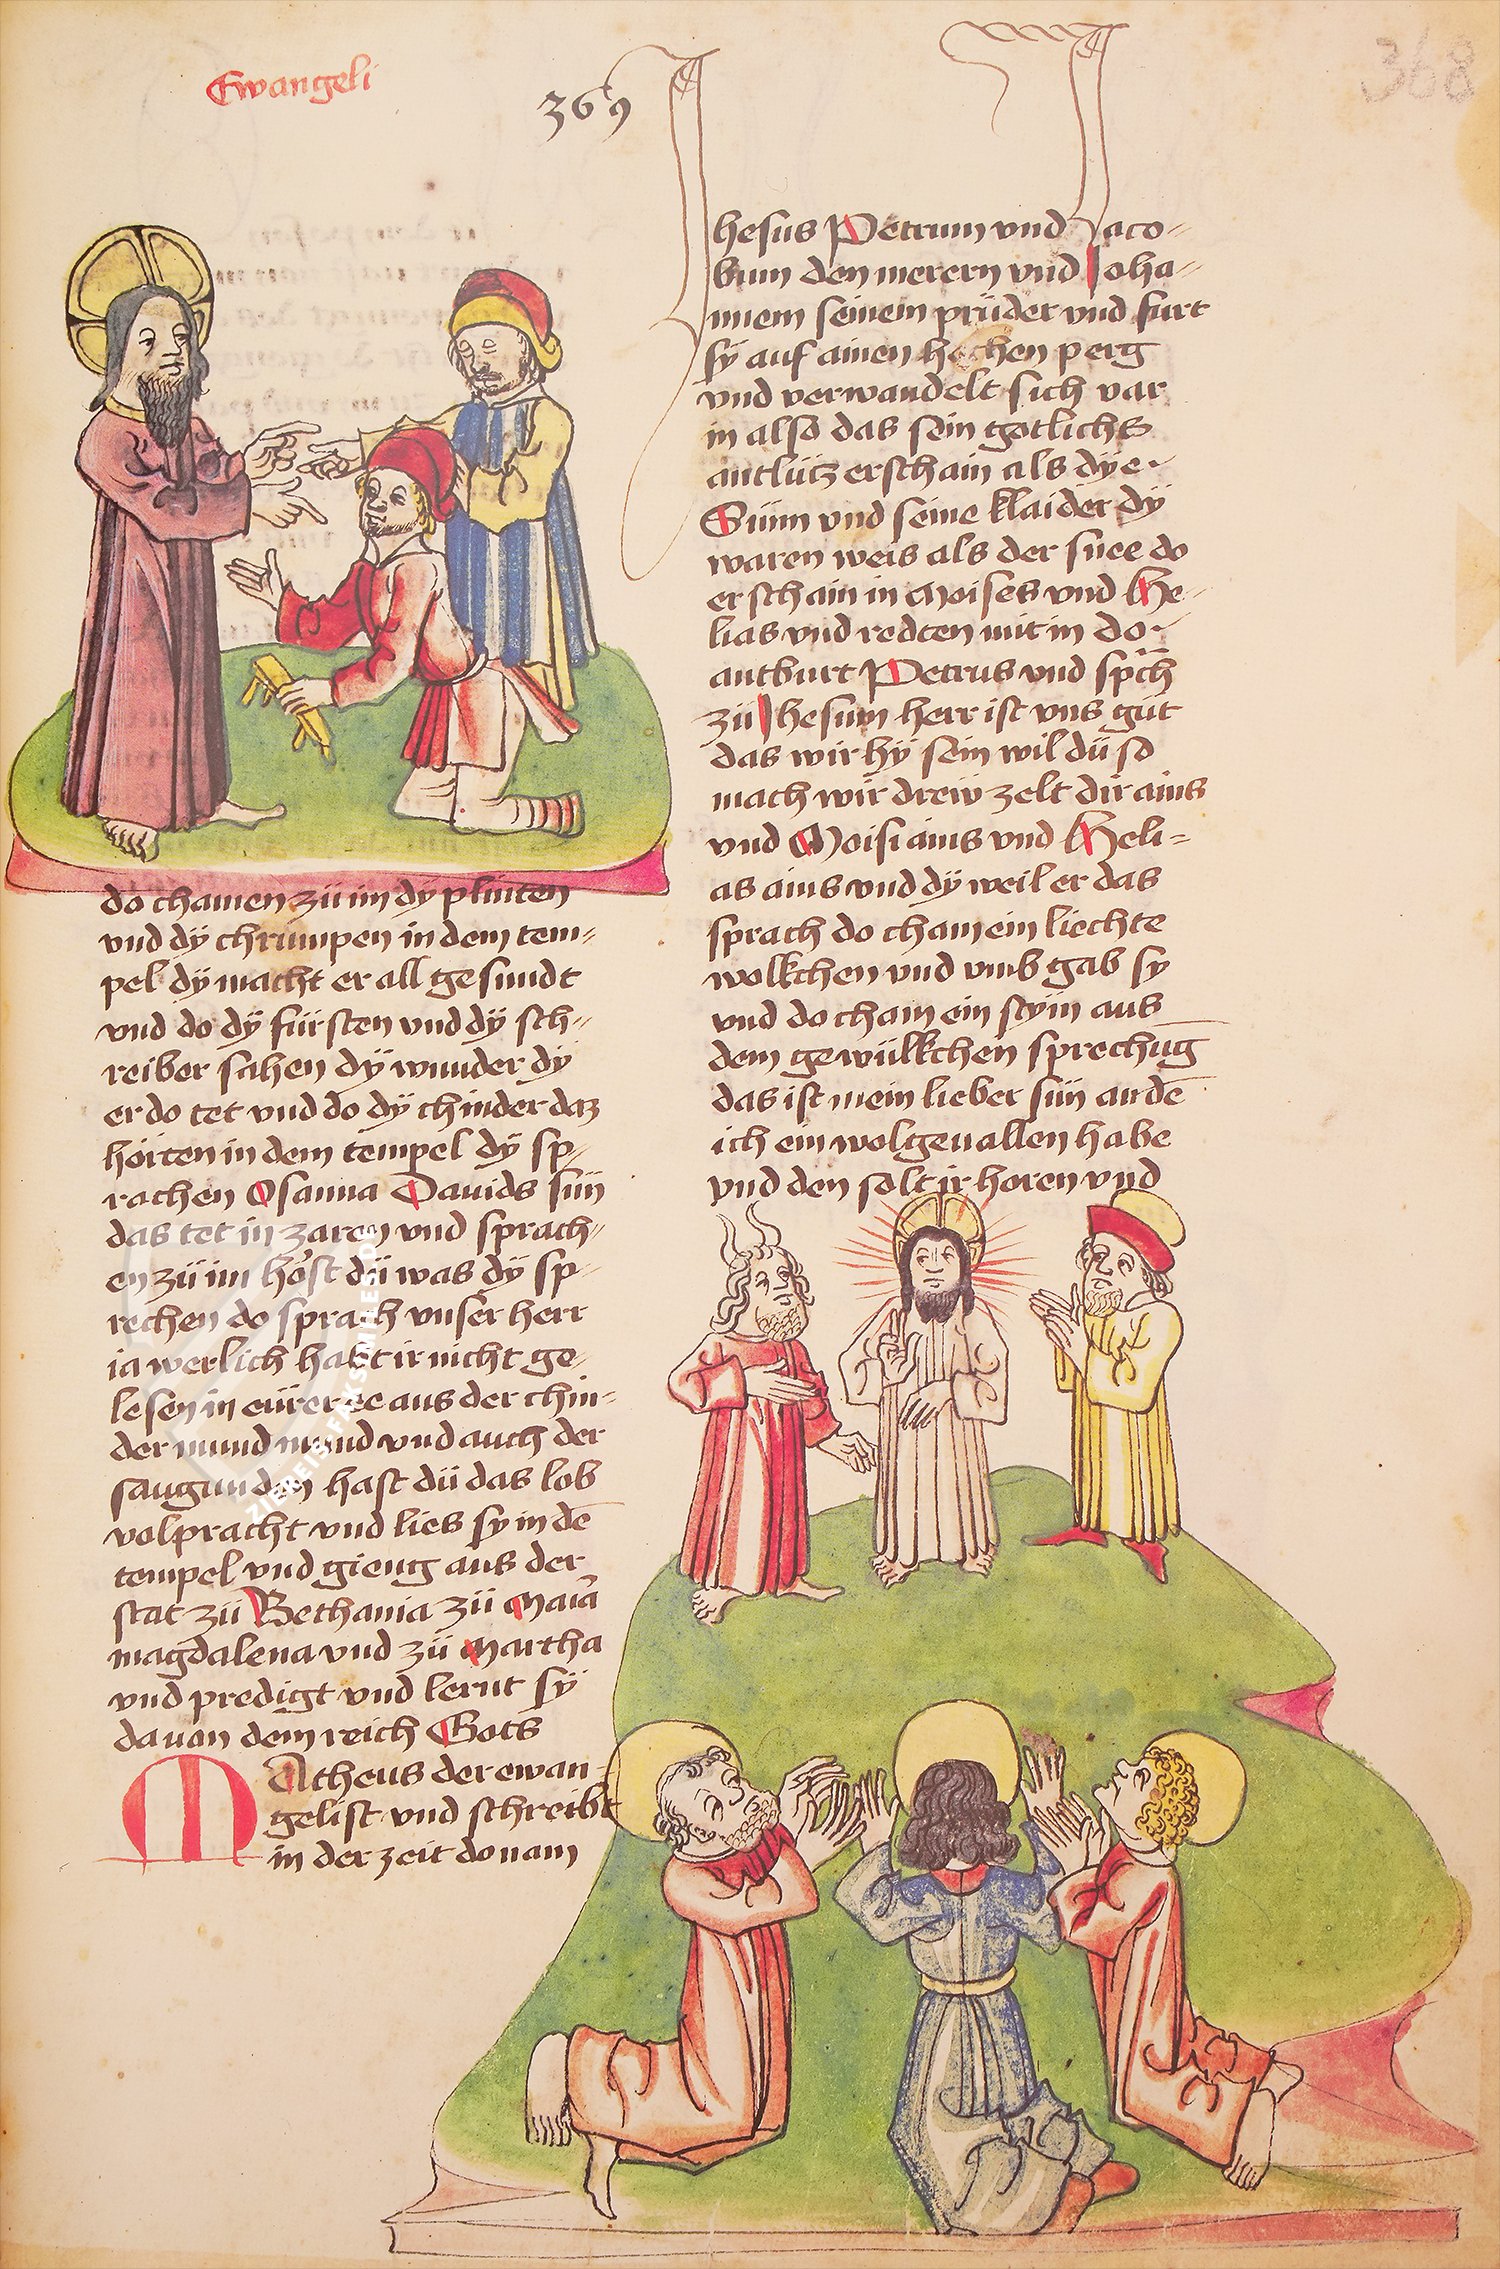 Ewangeli
369
368
do chamen zü im dy plinten
vnd dÿ chrumpen in dem tem-
pel dÿ macht er all gesundt
vnd do dÿ fürsten vnd dÿ sch-
reiber sahen dÿ wunder dÿ
er do tet vnd do dÿ chinder daz
hörten in dem tempel dÿ sp-
rachen Osanna Dauids sün
das tet in zaren vnd sprach-
en zü im hőst dü was dÿ sp-
rechen do sprach vnser herr
ia werlich habt ir nicht ge-
lesen in eürer ee aus der chin-
der mund mund vnd auch der
saugunden hast dü das lob
volpracht vnd lies sy in dē
tempel vnd gieng aus der
stat zü Bethania zü Maīa
magdalena vnd zü Martha
vnd predigt vnd lernt sÿ
da uon dem reich Gots
MAtheus der ewan-
gelist vnd schreibt
in der zeit do nam
Jhesus Petrum vnd Jaco-
bum den merern vnd Joha-
nnem seinem prüder vnd furt
sÿ auf ainen hochen perg
vnd verwandelt sich var
in also das sein gotlichs
antlütz erschain als dÿe
Sünn vnd seine klaider dÿ
waren weis als der snee do
erschain in Moises vnd He-
lias vnd redten mit in do
antburt Petrus vnd spch
zü Jhesum herr ist vns güt
das wir hÿ sein wil dü so
mach wir dreÿ zelt dir ains
vnd Moisi ains vnd Heli-
as ains vnd dÿ weil er das
sprach do cham ein liechte
wolkchen vnd vmb gab sy
vnd do cham ein stÿm aus
dem gewülkchen sprechūg
das ist mein lieber sün an dē
ich ein wolgeuallen habe
vnd den solt ir horen vnd